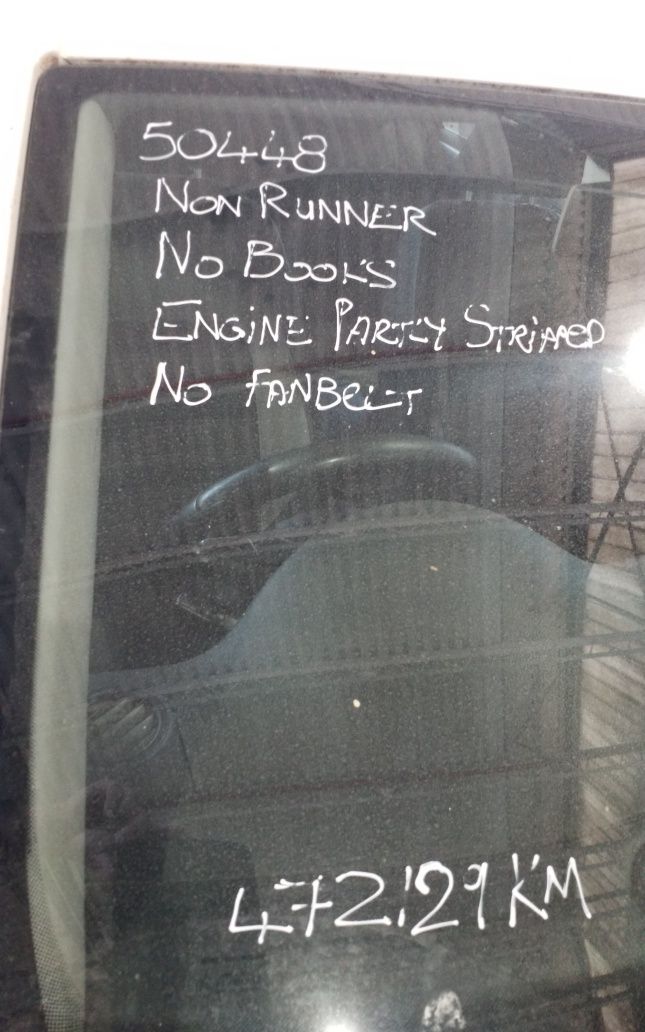 50448
NON RUNNER
NO BOOKS
ENGINE PARTLY STRIPPED
NO FANBELT
472129 KM